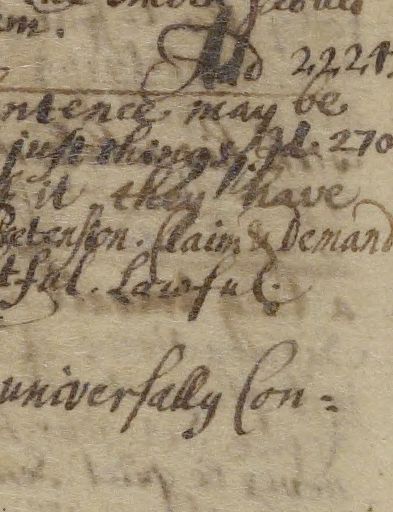 em.
Ibid 2224
ntence may be
just things. Id. 270
it they have
Pretension. Claim & Demand
tful. Lawful.
universally Con=